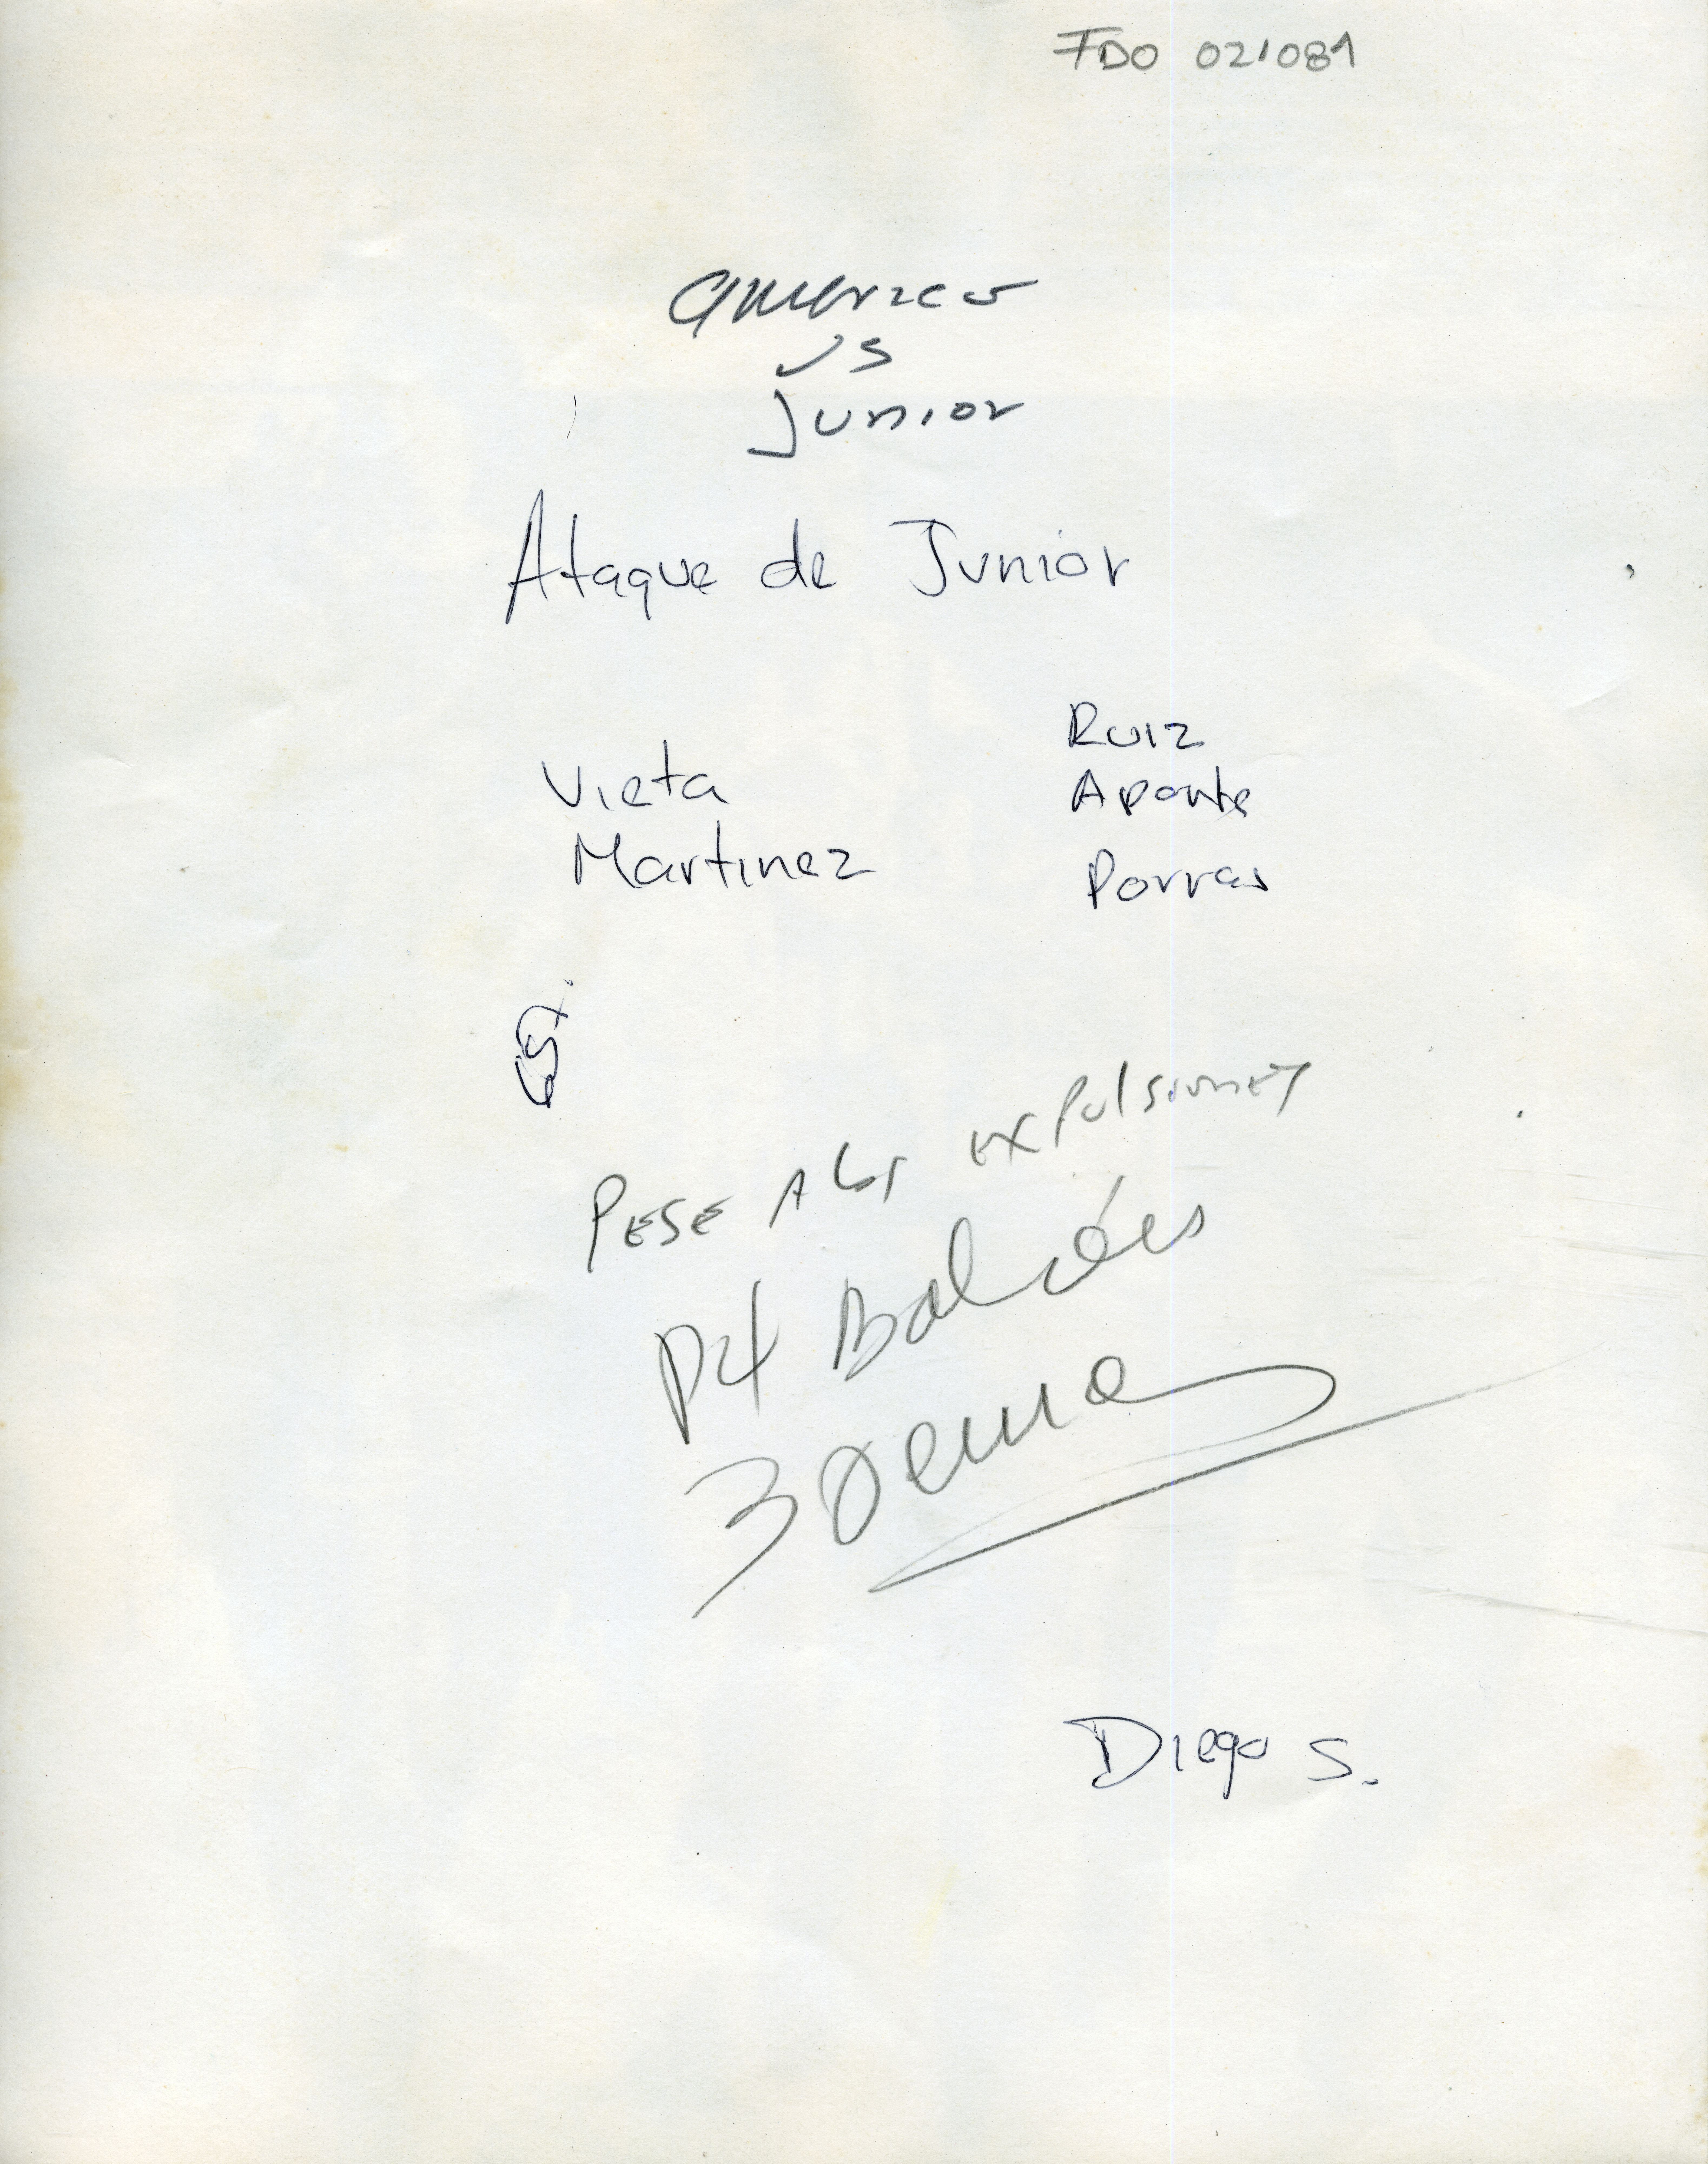 FDO 021081
america
vs
Junior
Ataque de Junior
Ruiz
Vieta
Aponte
Martinez
Porras
PESE A las expulsiones
P4
30
Diego S.